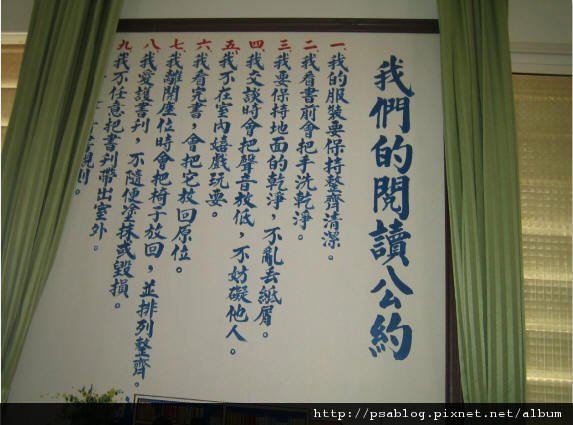 我們的閱讀公約
一、我的服裝要保持整齊清潔。
二、我看書前會把手洗乾淨。
三、我要保持地面的乾淨，不亂丟紙屑。
四、我交談時會把聲音放低，不妨礙他人。
五、我不在室內嬉戲玩耍。
六、我看完書，會把它放回原位。
七、我離開座位時會把椅子放回，並排列整齊。
八、我愛護書刊，不隨便塗抹或毀損。
九、我不任意把書刊帶出室外。
規則。
http://psablog.pixnet.net/album